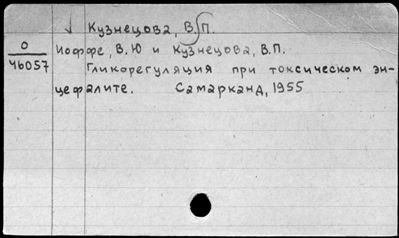 ↓ Кузнецова, В.П.
О
46057
Иоффе, В.Ю и Кузнецова, В.П.
Гликорегуляция при токсическом эн-
цефалите. Самарканд, 1955